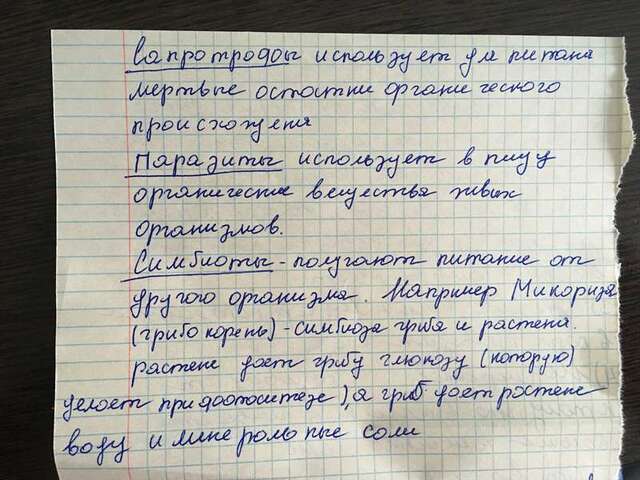 Сапротрофы используют для питания
мертвые остатки органического
происхождения
Паразиты используют в пищу
органические вещества живых
организмов.
Симбиоты - получают питание от
другого организма. Например Микориза
(грибокорень) - симбиоз гриба и растения.
растение дает грибу глюкозу (которую)
делает при фотосинтезе), а гриб дает растение
воду и минеральные соли